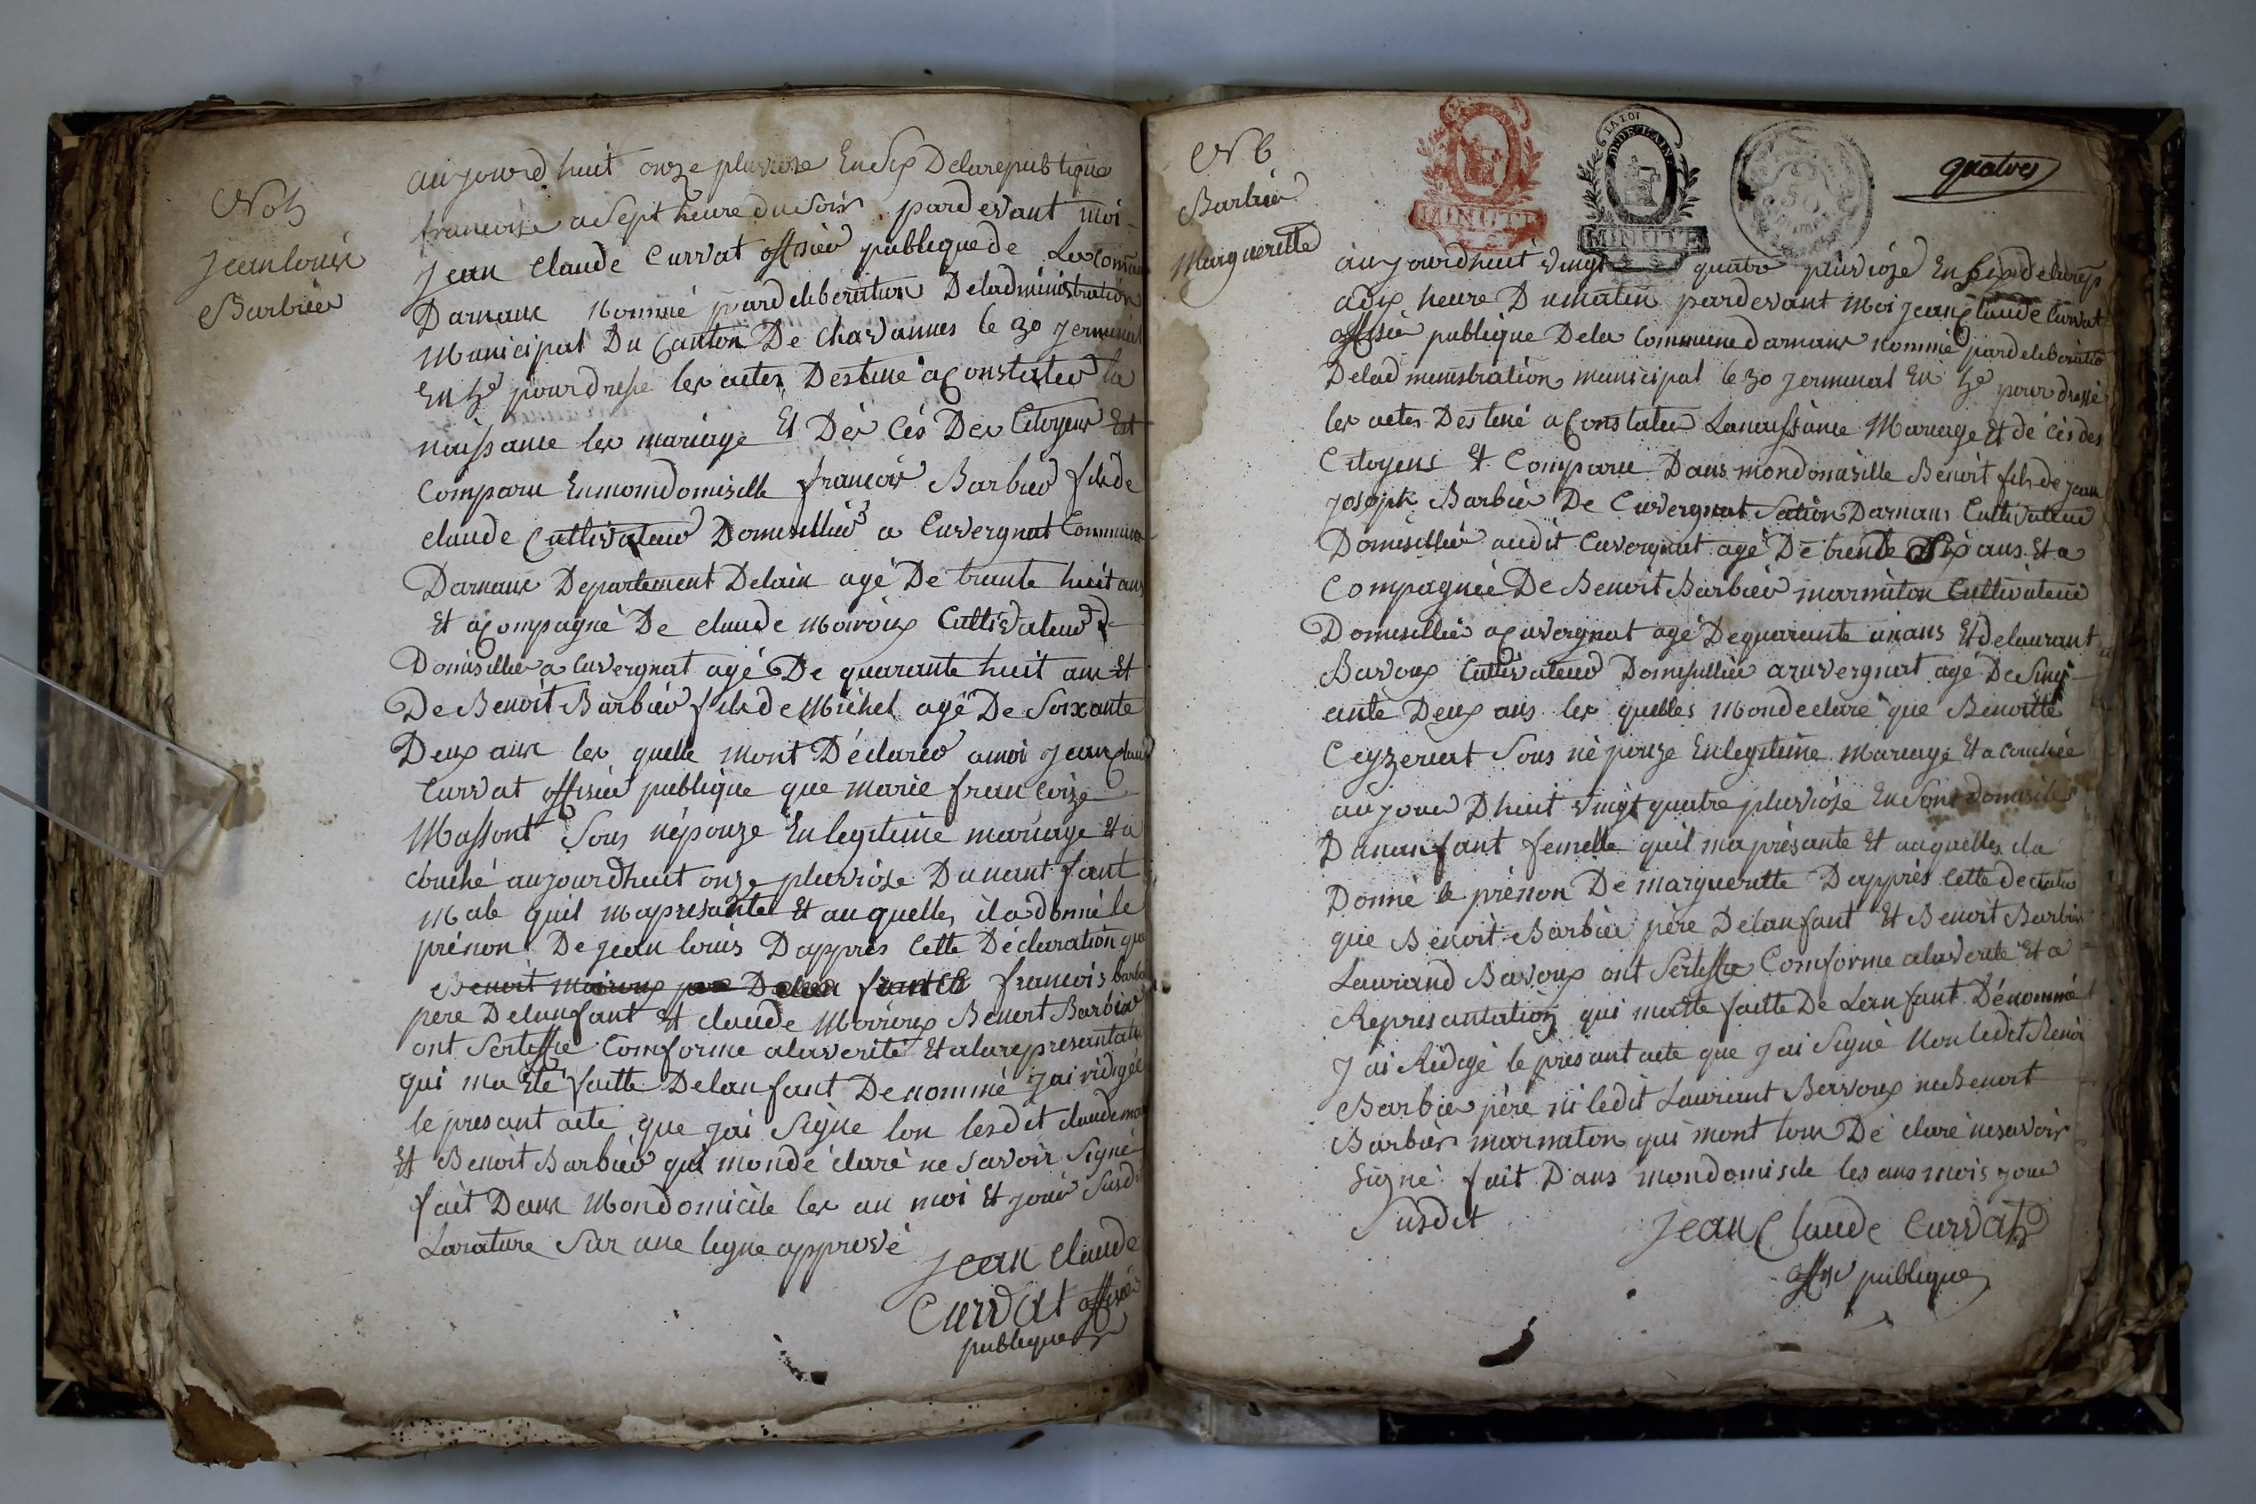 No 5
Jean louis
Barbier
aujourd huit onze pluviose En Six Delarepublique
francoise a Sept heure du Soir pardevant moi
Jean Claude Curvat offisier publique de La Commu
Darnanx Nommé pardeliberation Deladministration
Municipal Du Canton De Chavannes le 30 Jerminal
En 5e pour drese les actes Destiné a Constater la
naissance les mariage Et Des Cés Des Citoyens Est
Comparu En mondomiselle francois Barbier fils de
claude Cultivateur Domisillier a Cuvergnat Commune
Darnanx Departement Delain agé De trente huit ans
Et acompagné De claude Moiroux Cultivateur
Domisillier a Cuvergnat agé De quarante huit ans Et
De Benoit Barbier fils de Michel agé De Soixante
Deux ans les quelle mont Déclarer a moi Jean Clau
Curvat offisier publique que marie francoize
Massont Sous népouze En legiteime mariage Et a
couché aujourdhuit onze pluviôse Dunant fant
Male quil Mapresante Et au quelles il a donné le
prénon De Jean louis Dapprés Cette Déclaration que
Benoit Moiroux pere Delan fant Et francois barbi
pere Delanfant Et claude Moiroux Benoit Barbier
ont Sertiffié Comforme alaverité Et alarepresantati
qui ma Eté faitte Delanfant Denommé Jai ridigée
le presant acte que jai Signé lon lesdit claude mo
Et Benoit Barbier qui monde claré ne Savoir Signé
fait Dans Mondomicile les an moi Et jour Susdi
Larature Sur une ligne apprové
Jean Claude
Curvat offisier
publique
N 6
Barbier
Margueritte
LA LOI
MINUTE
MINUTE
50
quatres
aujourdhuit vingt quatre pluvioze En Six delarep
adix heure Dumatin pardevant Moi Jean Claude Curvat
offisier publique Dela Commune darnanx nommé pardeliberatio
Delad menistration municipal le 30 Jerminal En 5e pour dressé
les actes Destiné a Constater Lanaissance Mariage Et dé cés des
Citoyens Et Comparu Dans mondomisille Benoit fils de jean
Joseph Barbier De Cuvergnat Sation Darnans Cultivateur
Domisillier audit Cuvergnat agé De trente Six ans Et a
Compagnié De Benoit Barbier marmiton Cultivateur
Domisillier a Cuvergnat agé Dequarante un ans Et delaurant
Bavoux Cultivateur Domisillier a Cuvergnat agé De Sinq
ante Deux ans les quelles Mondeclare que Benoitte
Ceyzeriat Sous népouze Enlegiteime Mariage Et a couchée
aujour Dhuit vingt quatre pluviose En Son domicile
Dunanfant femelle quil ma présante Et auquelles ila
Donné le prénon De marguerette Dapprés Cette declatio
que Benoit Barbier pére Delanfant Et Benoit Barbier
Laurand Bavoux ont Sertiffié Comforme alaverite Et a
Representation qui ma Ete faitte De Lenfant Dénommé
J ai Rédigé le presant acte que Jai Signé Non ledit Benoi
Barbier pére ni ledit Laurant Bavoux ne Benoit
Barbier marmaton qui mont tous Dé claré ne savoir
Signé fait Dans mondomisile les ans mois jour
Susdit
Jean Claude Curvat
offis publique